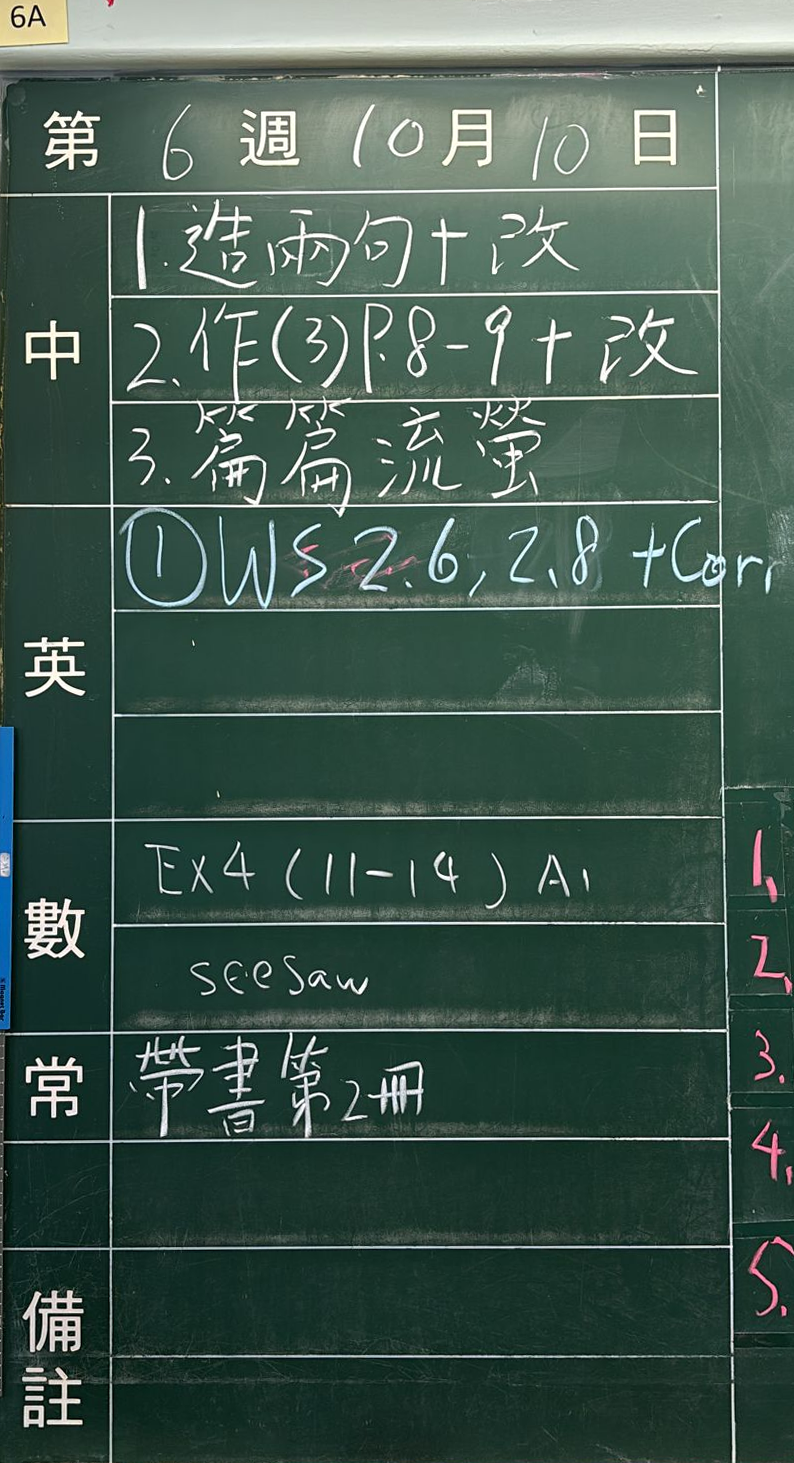 6A
第 6 週 10 月 10 日
中
1.造兩句+改
2.作(3)P.8-9+改
3.篇篇流螢
英
①WS 2.6, 2.8 +Corr
數
Ex4 (11-14) A1
seesaw
常
帶書第2冊
備註
1.
2.
3.
4.
5.